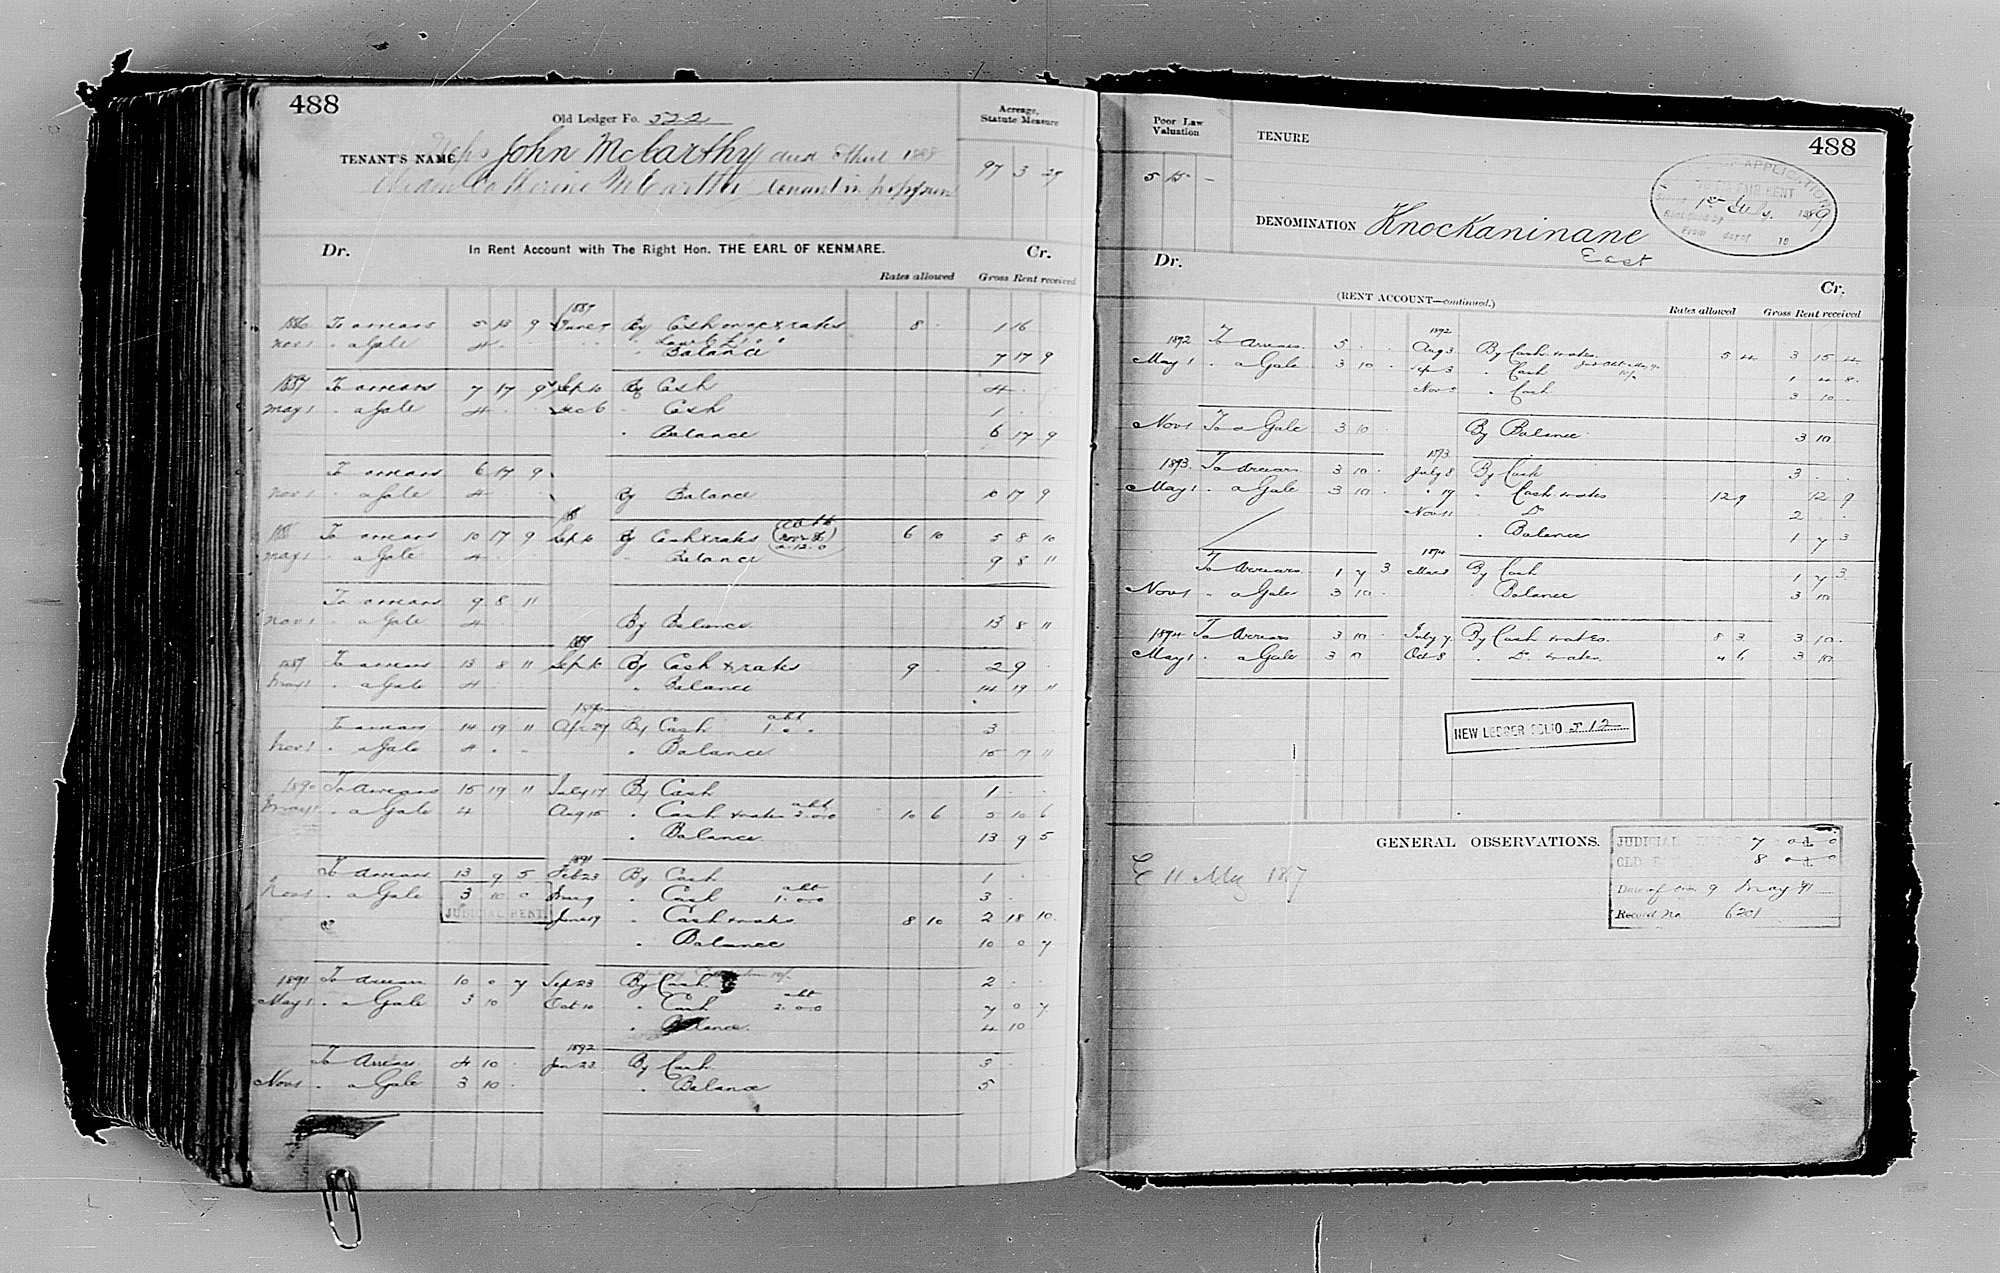 488
Old Ledger Fo. 522
Acreage, Statute Measure
TENANT'S NAME Reps John McCarthy died April 1888
Widow Catherine McCarthy tenant in possession
97 3 29
Dr. In Rent Account with The Right Hon. THE EARL OF KENMARE. Cr.
Rates allowed Gross Rent received
1887
1886 To arrears 5 13 9 June 7 By Cash & rates 8 . 1 16
Nov 1 . a Gale 4 . .
. Balance 7 17 9
1887 To arrears 7 17 9 Sep 10 By Cash 4 . .
May 1 . a Gale 4 . . Dec 6 . Cash 1 . .
. Balance 6 17 9
To arrears 6 17 9
Nov 1 . a Gale 4 . . By Balance 10 17 9
1888 To arrears 10 17 9 Sep 10 By Cash & rates 6 10 5 8 10
May 1 . a Gale 4 . . . Balance 9 8 11
To arrears 9 8 11
Nov 1 . a Gale 4 . . By Balance 13 8 11
1889
1889 To arrears 13 8 11 Sep 10 By Cash & rates 9 . 2 9 .
May 1 . a Gale 4 . . . Balance 14 19 11
1890
To arrears 14 19 11 Apr 29 By Cash abt 1 . . 3 . .
Nov 1 . a Gale 4 . . . Balance 15 19 11
1890 To Arrears 15 19 11 July 17 By Cash 1 . .
May 1 . a Gale 4 Aug 15 . Cash & rates abt 2.0.0 10 6 5 10 6
. Balance 13 9 5
1891
To Arrears 13 9 5 Feb 23 By Cash 1 . .
Nov 1 . a Gale 3 10 0 . Cash abt 1.0.0 3 . .
JUDICIAL RENT June 19 . Cash & rates 8 10 2 18 10
. Balance 10 0 7
1891 To arrears 10 0 7 Sep 23 By Cash 2 . .
May 1 . a Gale 3 10 Oct 10 . Cash abt 2.0.0 7 0 7
. Balance 4 10
1892
To Arrears 4 10 . Jan 23 By Cash 3 . .
Nov 1 . a Gale 3 10 . . Balance 5
Poor Law Valuation
5 15 –
TENURE
488
OF APPLICATION
TO FIX FAIR RENT
1st July 1889
From day of 18
DENOMINATION Knockaninane
East
Dr. (RENT ACCOUNT—continued.) Cr.
Rates allowed Gross Rent received
1892
1892 To Arrears 5 . . Aug 3 By Cash & rates 5 4 3 15 4
May 1 . a Gale 3 10 . Sep 3 . Cash 1 4 8
Nov . Cash 3 10 .
Nov 1 To a Gale 3 10 . By Balance 3 10
1893
1893 To Arrears 3 10 . July 8 By Cash 3 . .
May 1 . a Gale 3 10 . . 17 . Cash & rates 12 9 12 9
Nov 11 . Do 2 . .
. Balance 1 7 3
1894
To Arrears 1 7 3 Mar 8 By Cash 1 7 3
Nov 1 . a Gale 3 10 . . Balance 3 10
1894 To Arrears 3 10 . July 7 By Cash & rates 8 3 3 10 .
May 1 . a Gale 3 10 Oct 8 . Do & rates 4 6 3 10
NEW LEDGER FOLIO 512
GENERAL OBSERVATIONS.
JUDICIAL RENT 7 0 0
OLD RENT 8 0 0
Date of 9 May 91
Record No 6201
E 11 May 187